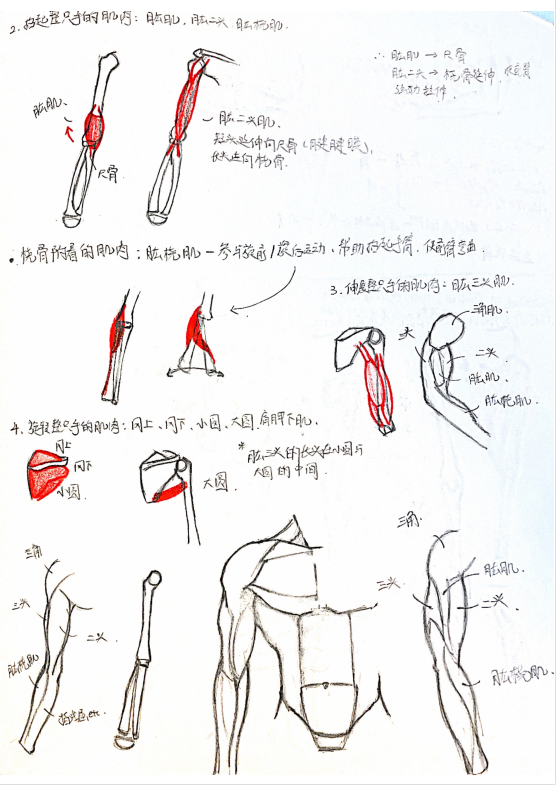 2. 抬起整只手的肌肉：肱肌，肱二头，肱桡肌.
∴ 肱肌 → 尺骨
肱二头 → 桡骨延伸，
肱肌、
尺骨
肱二头肌.
短头延伸向尺骨（腱腱膜），
长头连向桡骨.
• 桡骨附着的肌肉：肱桡肌 — 参与旋前/旋后运动、帮助抬起手臂、使前臂弯曲.
3. 伸展整只手的肌肉：肱三头肌.
三角肌.
头
二头.
肱肌.
肱桡肌.
4. 旋转整只手的肌肉：冈上、冈下、小圆、大圆 肩胛下肌.
冈上
冈下
小圆.
大圆.
* 肱三头的长头在小圆与
大圆的中间.
三角
三头
二头.
肱桡肌
etc.
三角.
肱肌.
三头
二头.
肱桡肌.